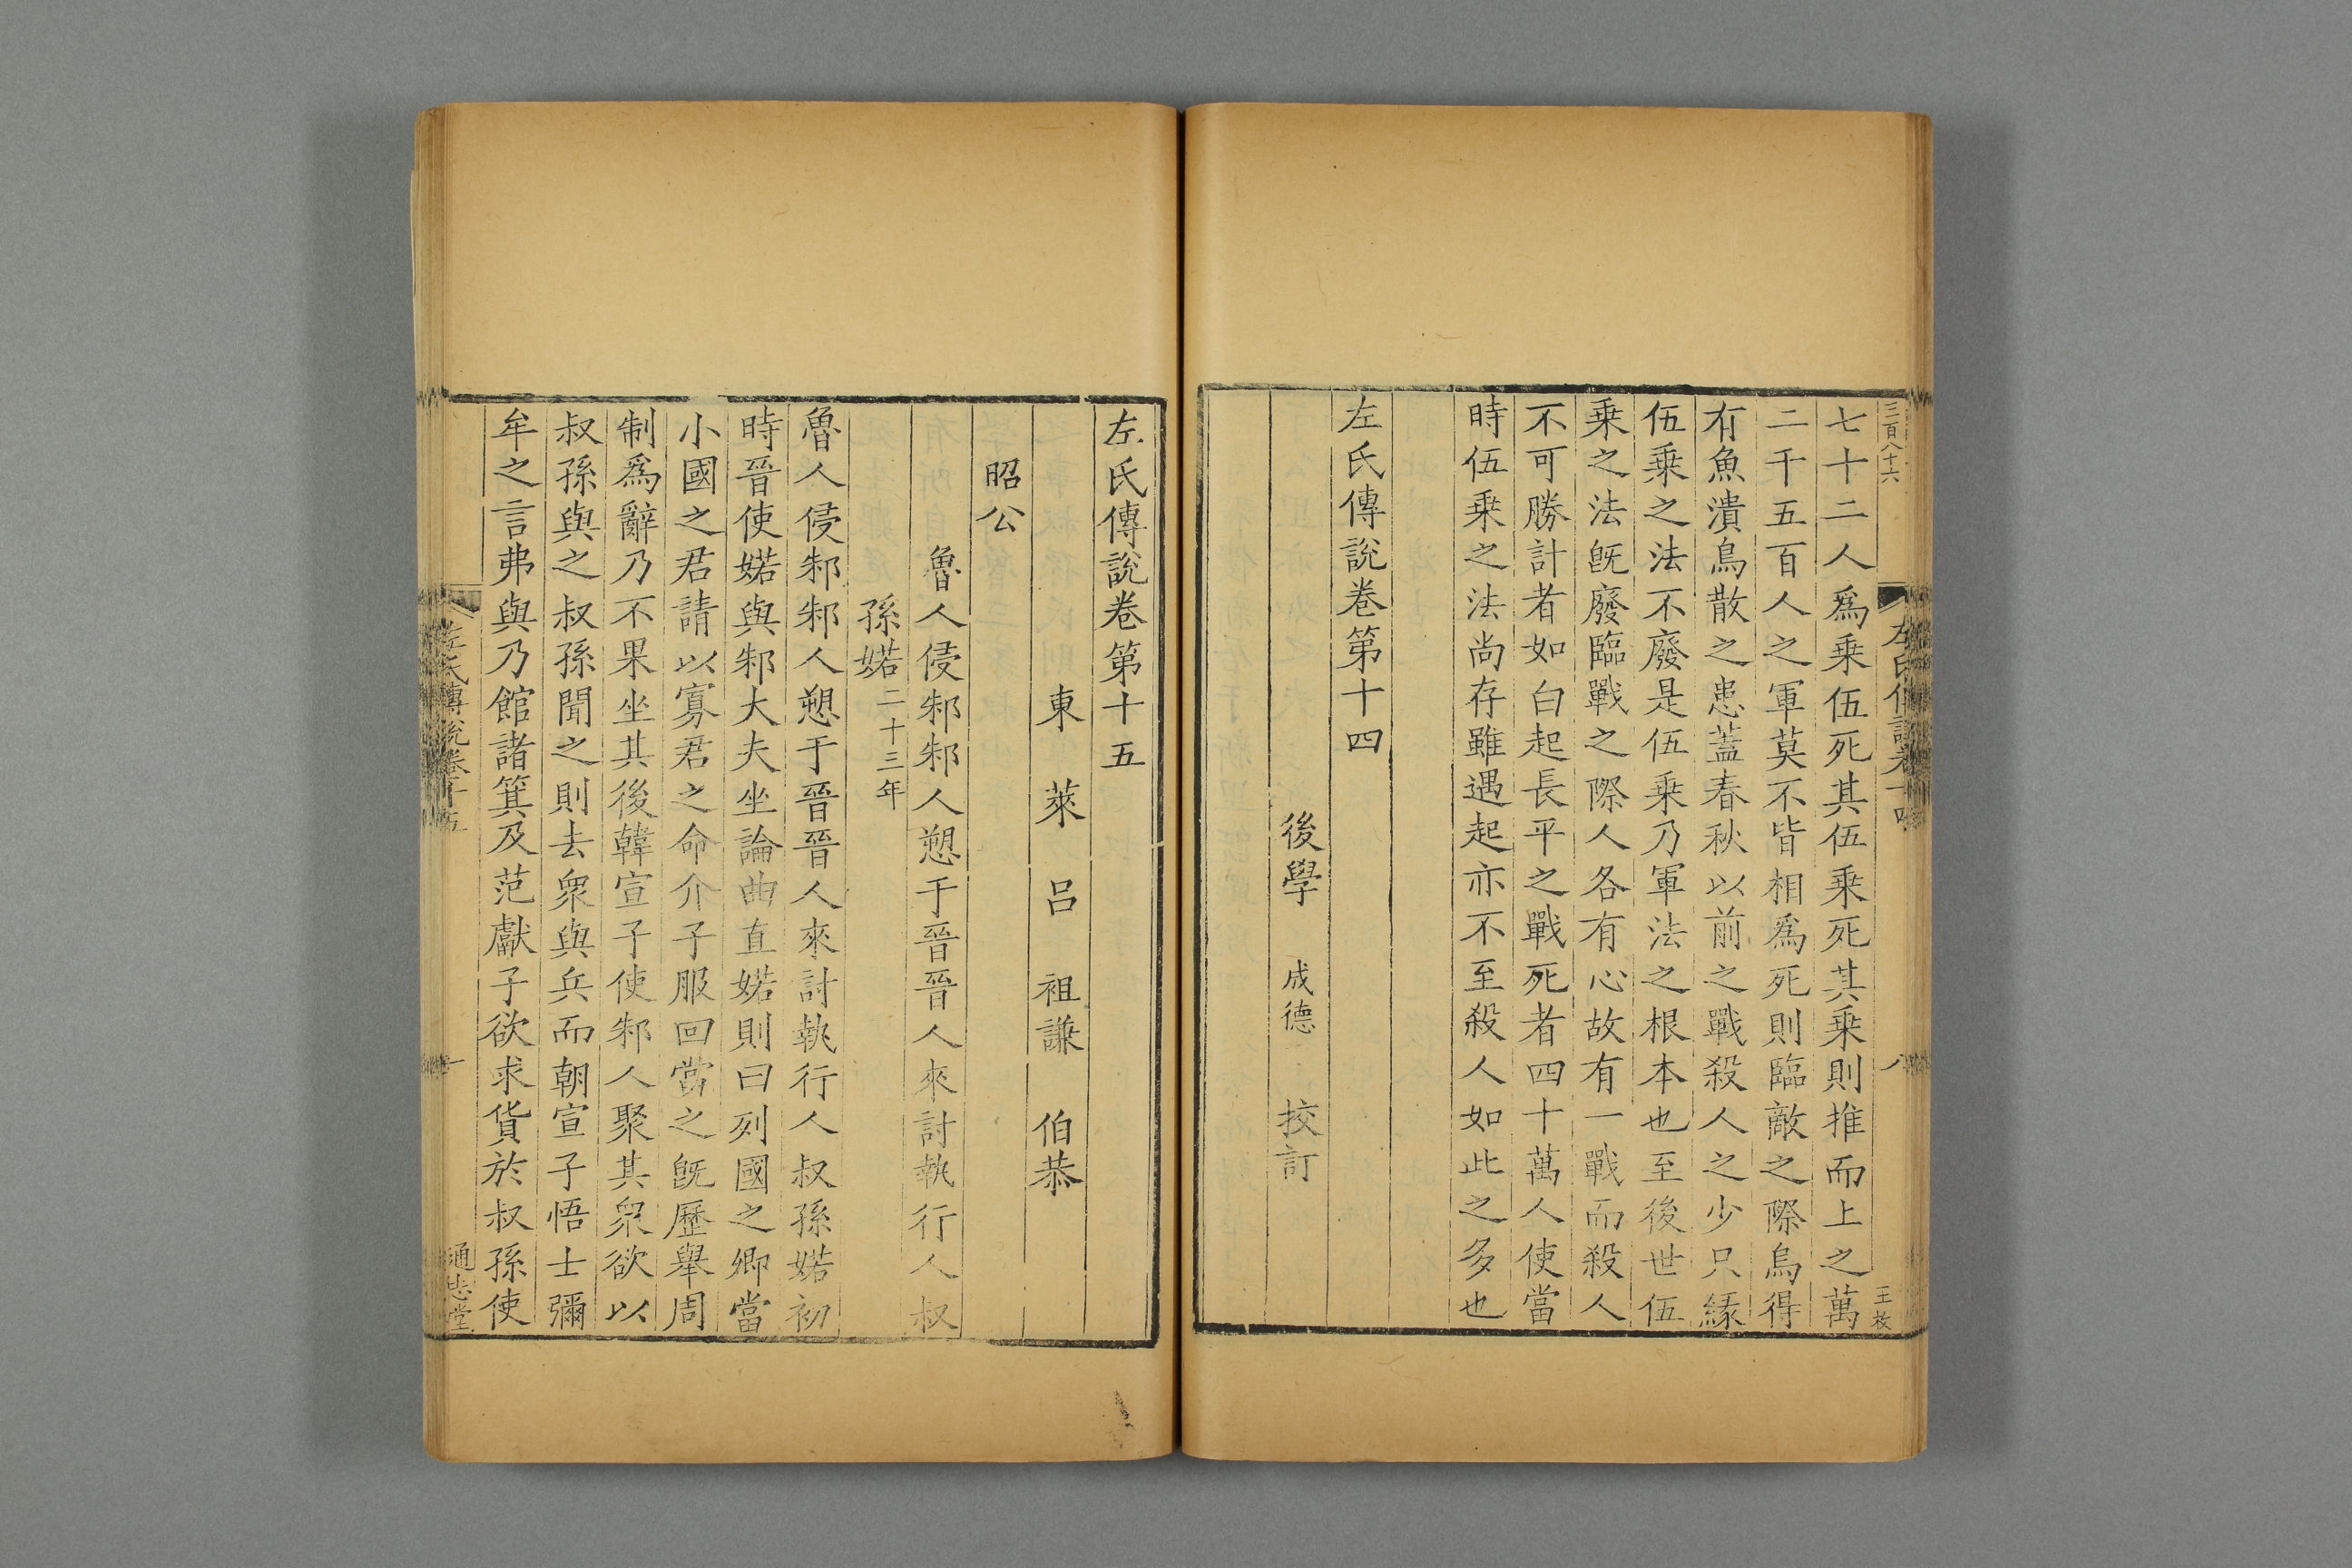 三百八十六
左氏傳説卷十四
八
王枚
七十二人爲乗伍死其伍乗死其乗則推而上之萬
二千五百人之軍莫不皆相爲死則臨敵之際烏得
有魚潰鳥散之患蓋春秋以前之戰殺人之少只緣
伍乗之法不廢是伍乗乃軍法之根本也至後世伍
乗之法旣廢臨戰之際人各有心故有一戰而殺人
不可勝計者如白起長平之戰死者四十萬人使當
時伍乗之法尚存雖遇起亦不至殺人如此之多也
左氏傳說卷第十四
後學 成德 挍訂
左氏傳說卷第十五
東萊呂祖謙伯恭
昭公
魯人侵邾邾人愬于晉晉人來討執行人叔
孫婼二十三年
魯人侵邾邾人愬于晉晉人來討執行人叔孫婼初
時晉使婼與邾大夫坐論曲直婼則曰列國之卿當
小國之君請以寡君之命介子服回當之旣歷舉周
制爲辭乃不果坐其後韓宣子使邾人聚其衆欲以
叔孫與之叔孫聞之則去衆與兵而朝宣子悟士彌
牟之言弗與乃館諸箕及范獻子欲求貨於叔孫使
左氏傳說卷十五
一
通志堂